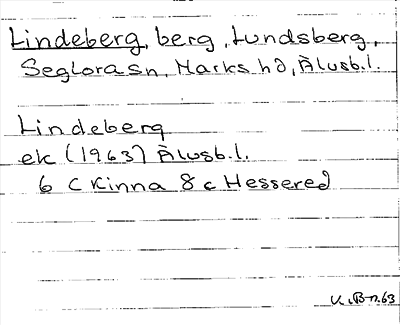 Lindeberg, berg, Lundsberg,
Seglora sn, Marks hd, Älvsb.l.
Lindeberg
ek (1963) Älvsb.l.
6 C Kinna 8 c Hessered